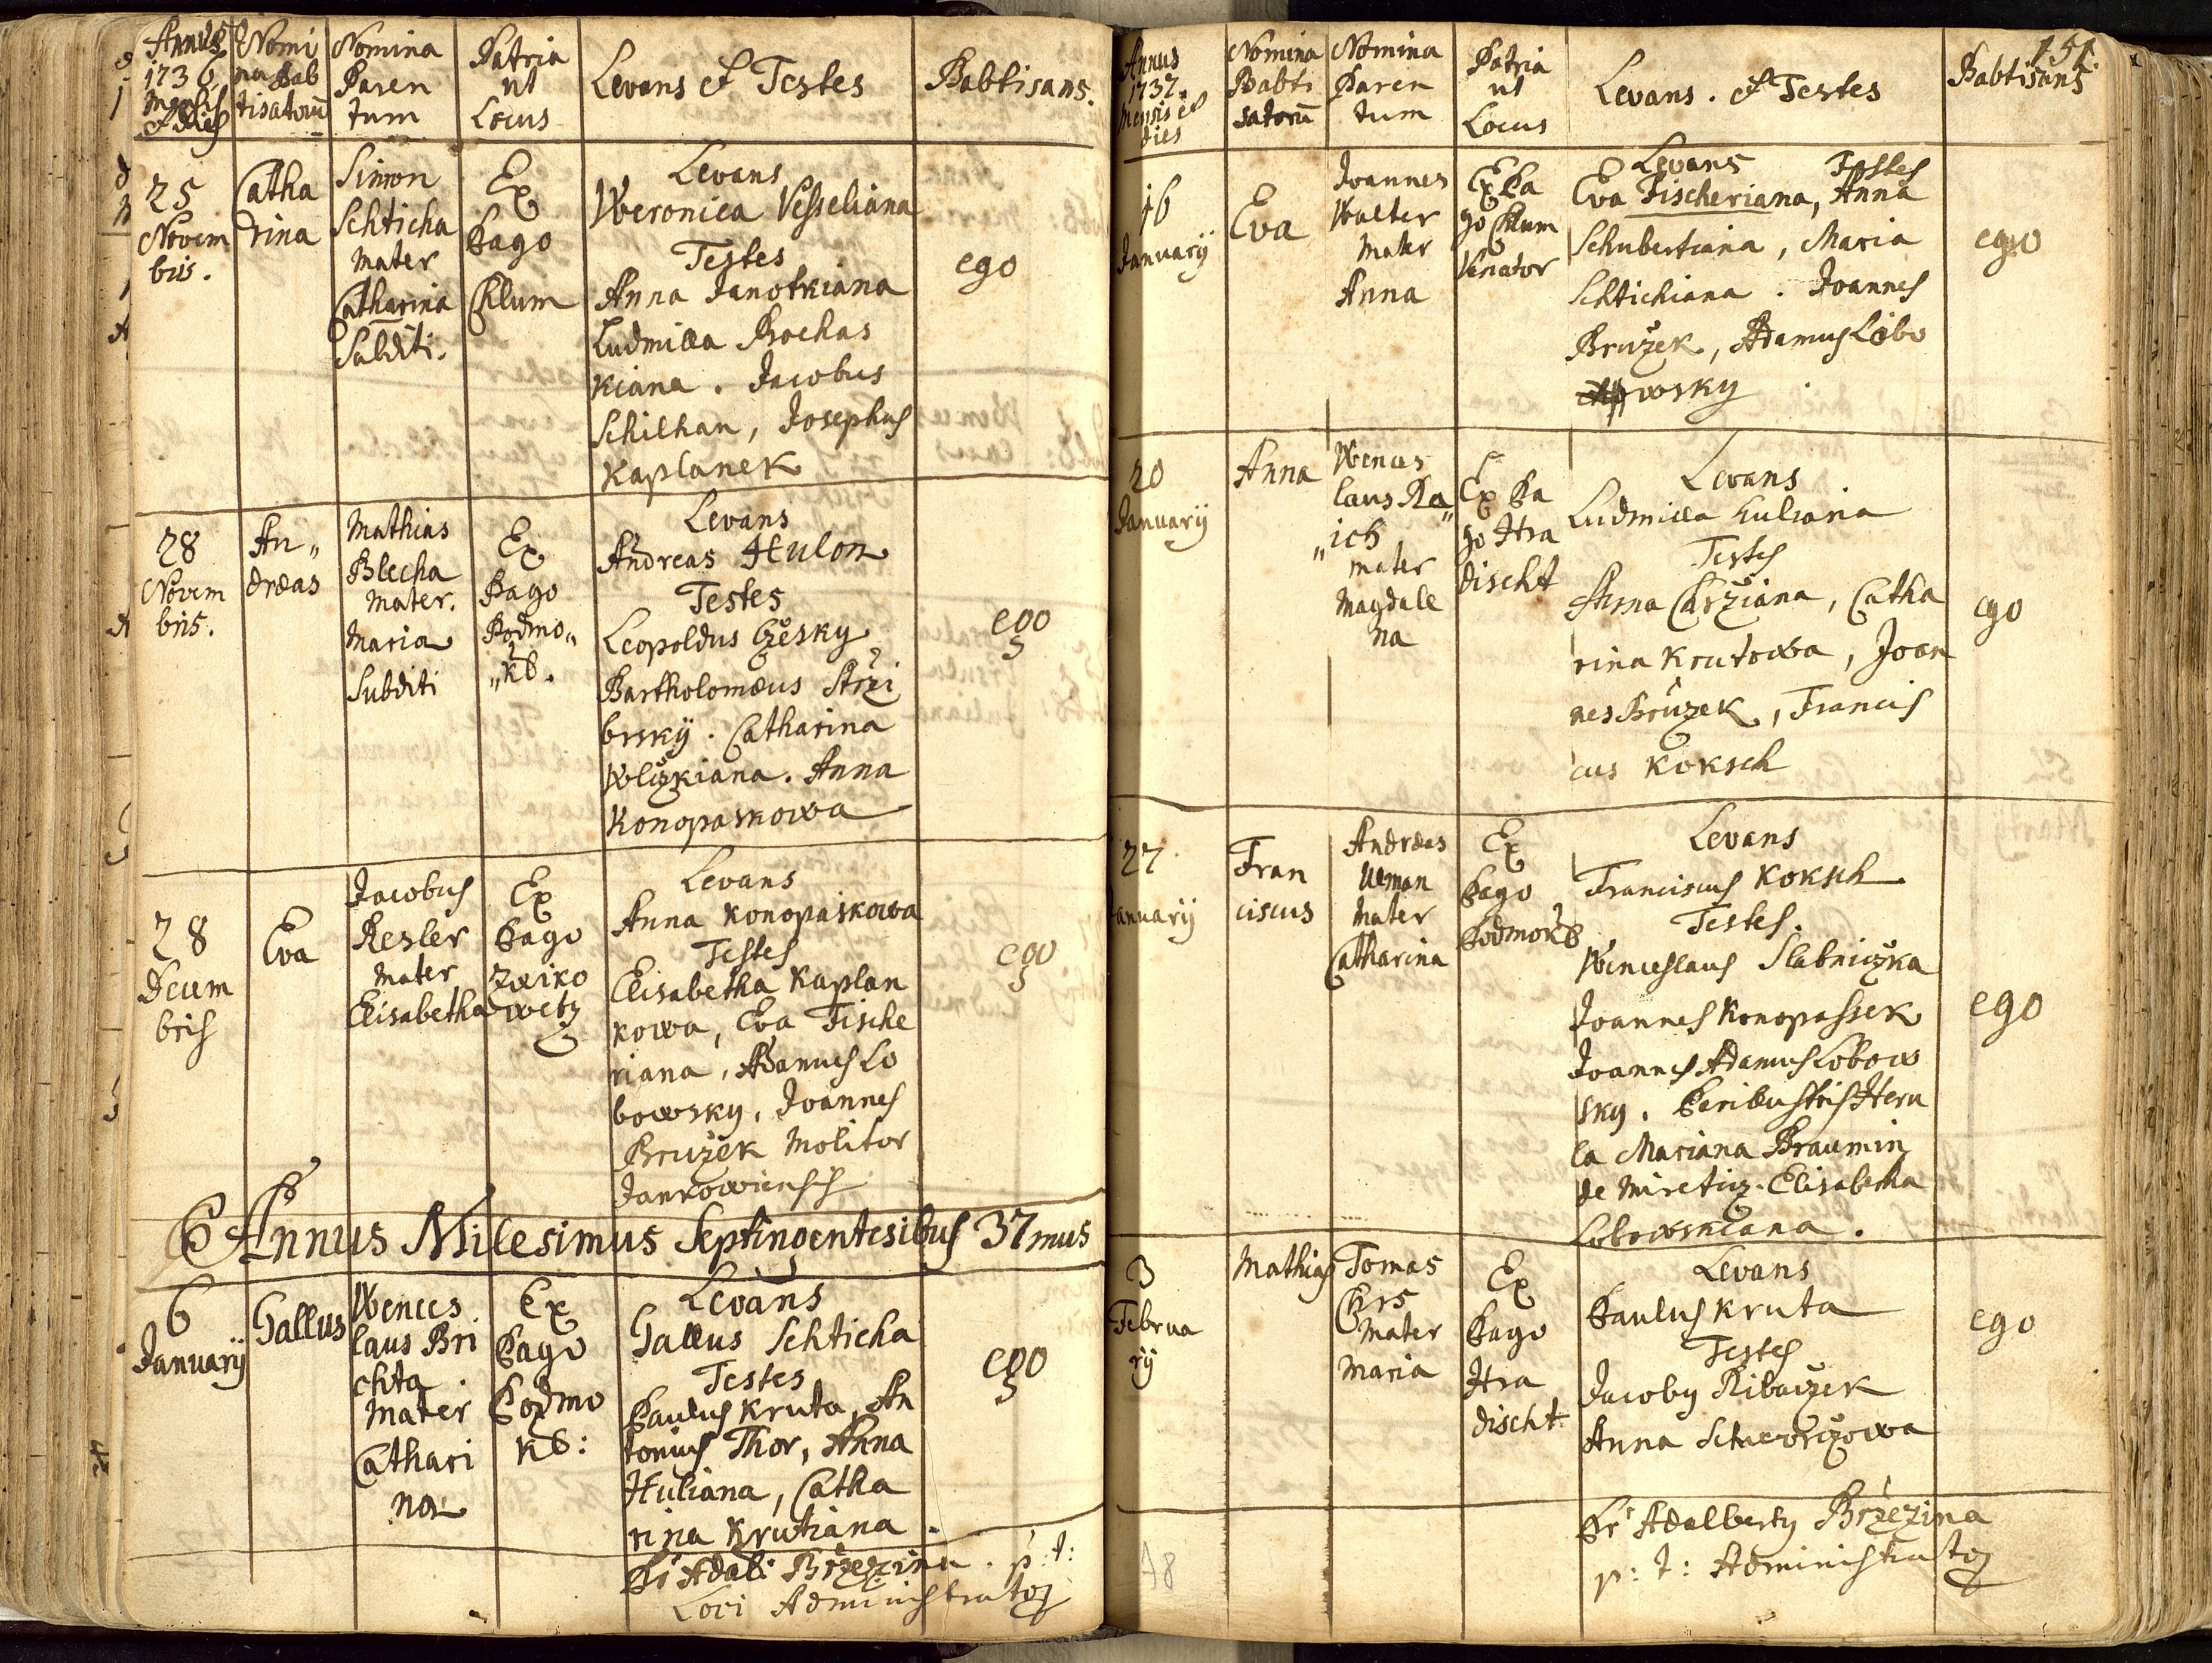 Annus
1736
Mensis
et Dies
Nomi
na Bab
tisatorū
Nomina
Paren
tum
Patria
ut
Locus
Levans et Testes
Babtisans.
25
Novem
bris.
Catha
rina
Simon
Schticha
Mater
Catharina
Subditi.
Ex
Pago
Chlum
Levans
Weronica Vesseliana
Testes
Anna Janotkiana
Ludmilla Prochas
kiana. Jacobus
Schilhan, Josephus
Kaplanek
ego
28
Novem
bris.
An„
dreas
Mathias
Blecha
Mater.
Maria
Subditi
Ex
Pago
Podmo„
„kl.
Levans
Andreas Hulon
Testes
Leopoldus Czesky
Bartholomæus Strzi
brskÿ. Catharina
Wlczkiana. Anna
Konopaskowa
ego
28
Decem
bris
Eva
Jacobus
Resler
Mater
Elisabetha
Ex
Pago
Zwiko
wetz
Levans
Anna Konopaskowa
Testes
Elisabetha Kaplan
kowa, Eva Fische
riana, Adamus Lo
bowsky, Joannes
Bruzek Molitor
Jankowiensis
ego
Annus Milesimus Septingentesibus 37mus
6
Januarÿ
Gallus
Wences
laus Bri
chta.
Mater
Cathari
na
Ex
Pago
Podmo
kl:
Levans
Gallus Schticha
Testes
Paulus Kruta, An
tonius Thor, Anna
Huliana, Catha
rina Krutiana.
ego
Pr Adal: Brzezina. p: t:
Loci Administrator
151.
Annus
1737.
Mensis et
dies
Nomina
Babti
satorū
Nomina
Paren
tum
Patria
ut
Locus
Levans. et Testes
Babtisans
16
Januarÿ
Eva
Joannes
Walter
Mater
Anna
Ex Pa
go Chlum
Venator
Levans Testes
Eva Fischeriana, Anna
Schubertiana, Maria
Schtichiana. Joannes
Bruzek, Adamus Lobo
wsky
ego
20
Januarÿ
Anna
Wences
laus Ra„
„ich
mater
Magdale
na
Ex Pa
go Hra
discht
Levans
Ludmilla Huliana
Testes
Anna Chrziana, Catha
rina Krutowa, Joan
nes Bruzek, Francis
cus Koksch
ego
27
Januarÿ
Fran
ciscus
Andreas
Ulman
Mater
Catharina
Ex
Pago
Podmokl
Levans
Franciscus Koksch
Testes.
Wenceslaus Slabniczka
Joannes Konopassek
Joannes Adamus Lobow
sky. Perillustris Heru
la Mariana Braumin
de Mireticz. Elisabetha
Lobowskiana.
ego
3
Februa
rÿ
Mathias
Tomas
Chrs
Mater
Maria
Ex
Pago
Hra
discht
Levans
Paulus Kruta
Testes
Jacobÿ Ribaczek
Anna Schworczowa
ego
Pr Adalbertÿ Brzezina
p: t: Administrator
A8